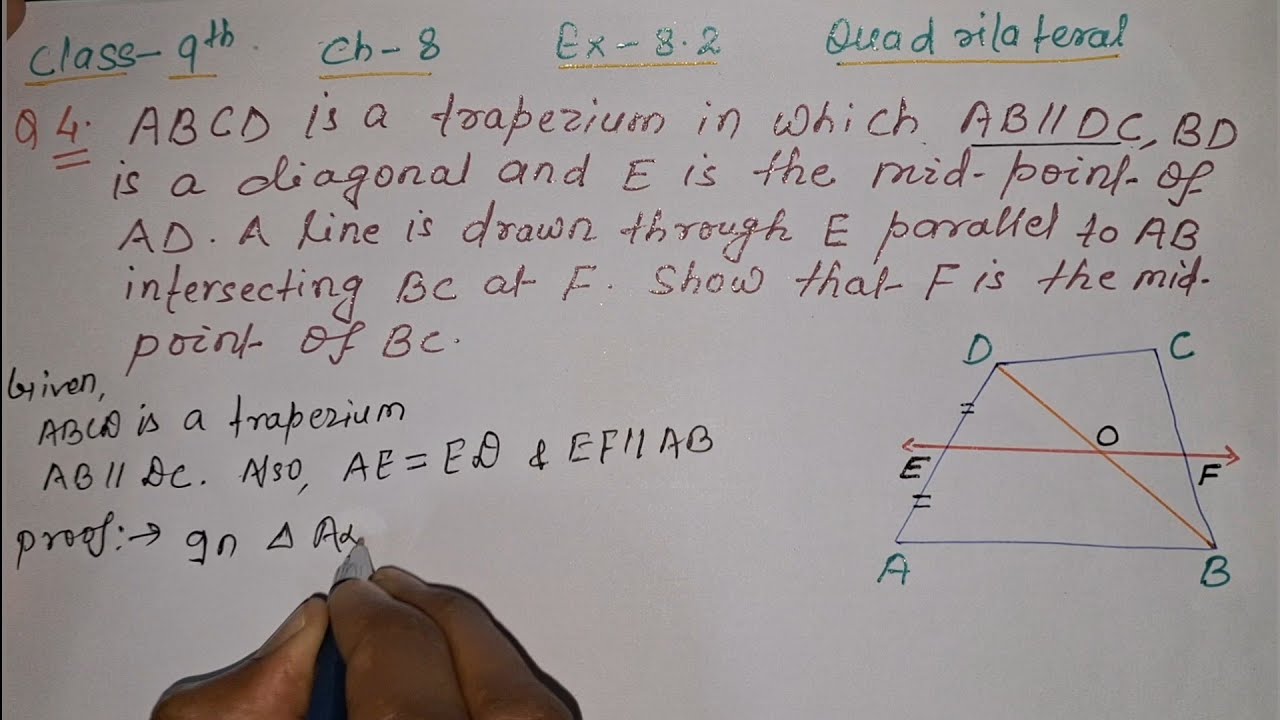 Class-9th Ch-8 Ex-8.2 Quadrilateral
Q4. ABCD is a trapezium in which AB//DC, BD
is a diagonal and E is the mid-point of
AD. A line is drawn through E parallel to AB
intersecting BC at F. Show that F is the mid-
point of BC.
Given,
ABCD is a trapezium
AB // DC. Also, AE = ED & EF // AB
proof:→ In Δ A
D C
O
E F
A B